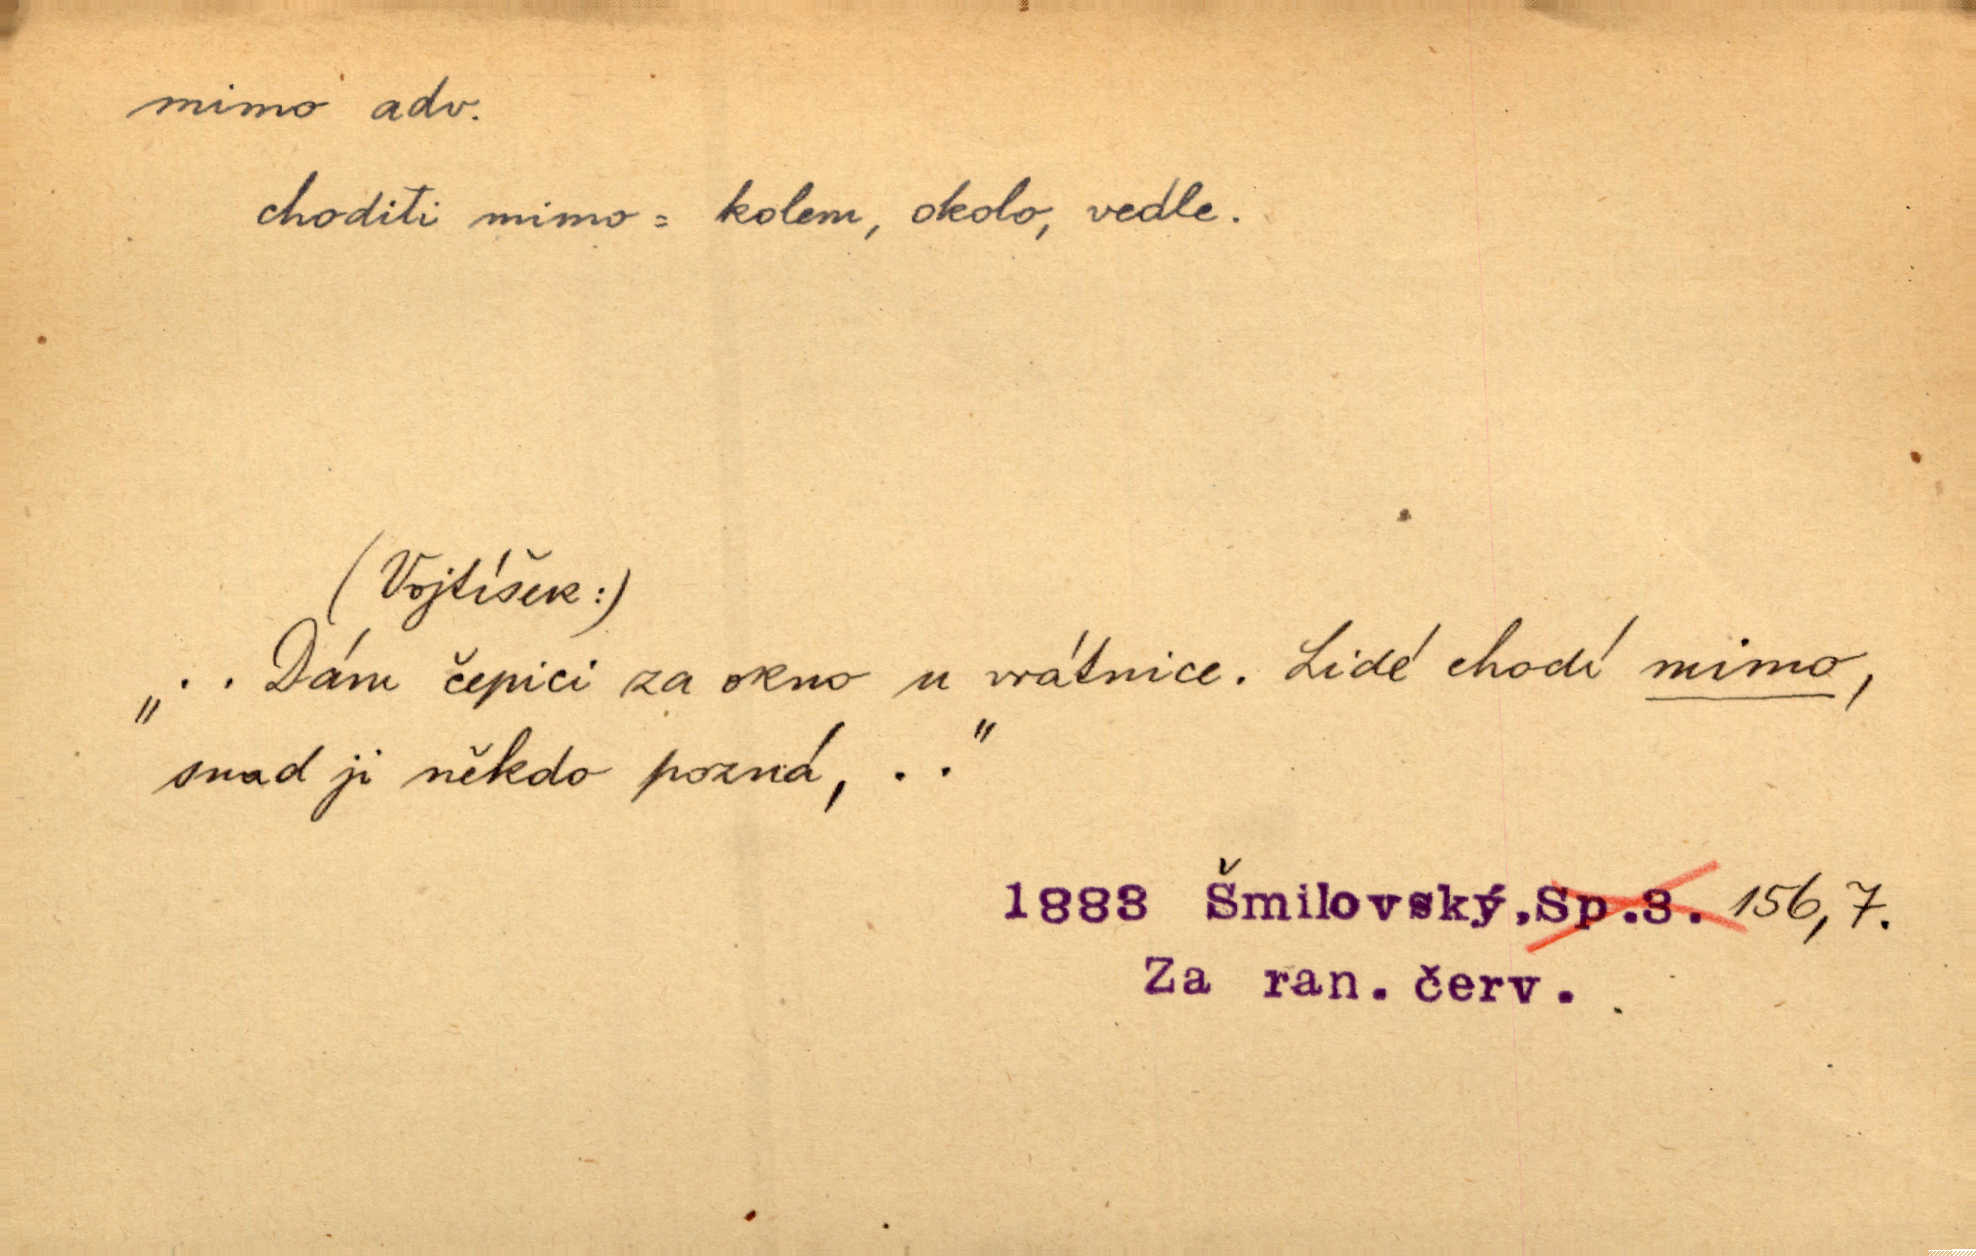 mimo adv.
choditi mimo = kolem, okolo, vedle.
(Vojtíšek:)
„. . Dám čepici za okno u vrátnice. Lidé chodí mimo,
snad ji někdo pozná, . ."
1883 Šmilovský,Sp.3. 156,7.
Za ran. červ.